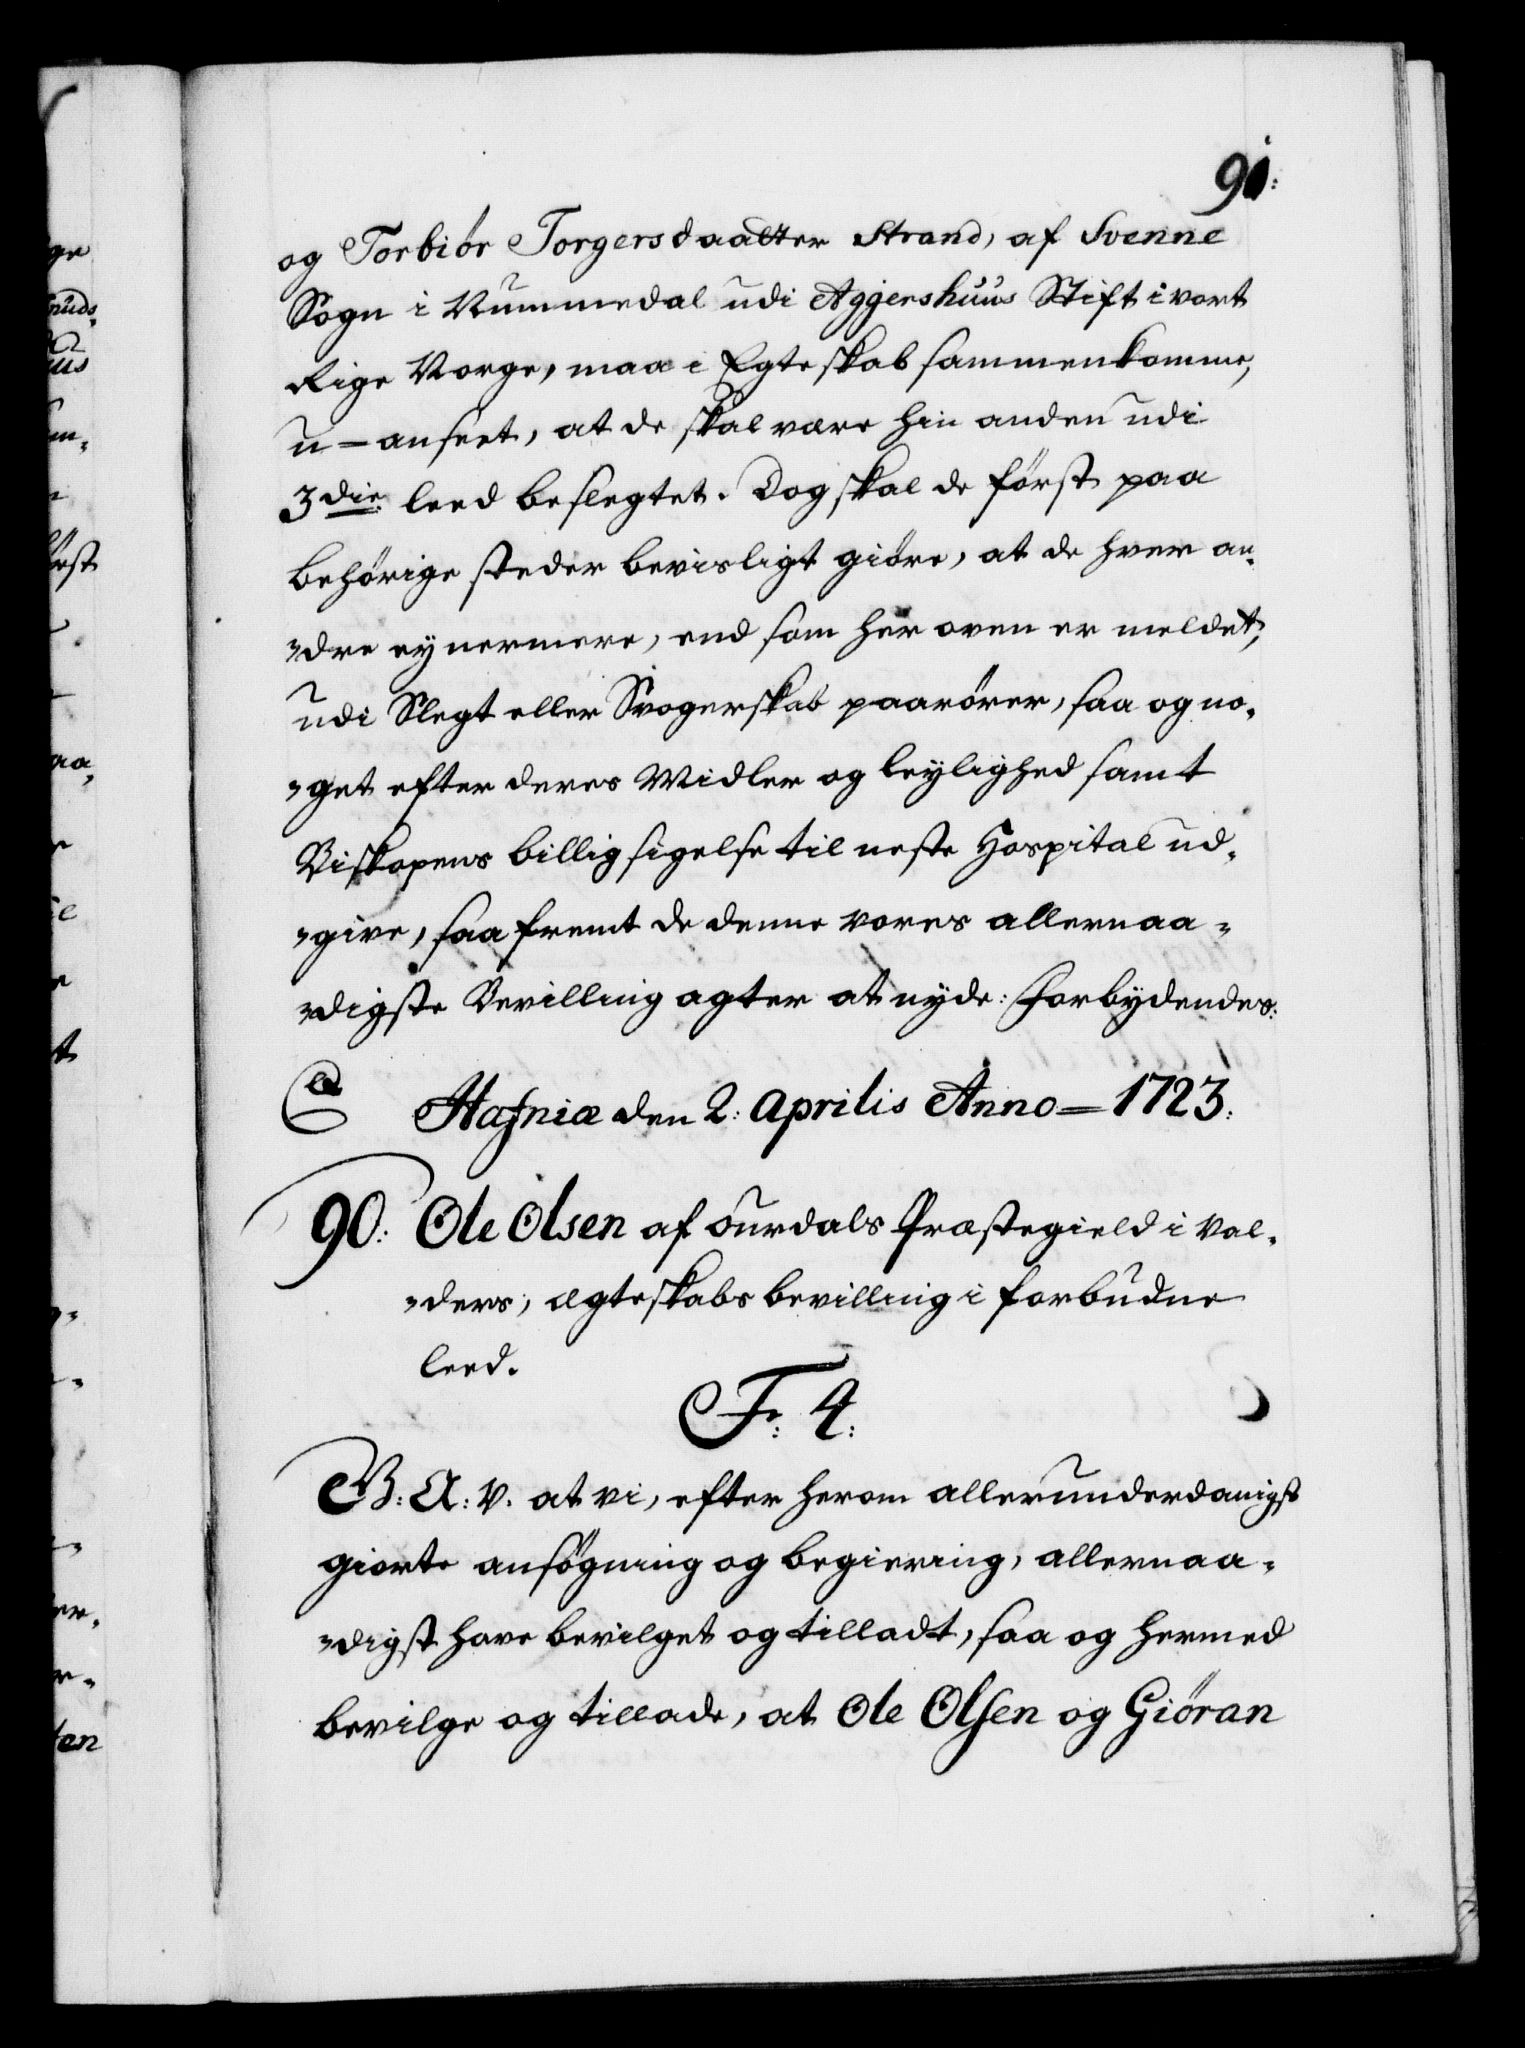 91:
og Torbiör Torgersdaatter Strand, af Svenne
Sogn i Nummedal udi Aggershuus Stift i vort
Rige Norge, maa i Egteskab sammenkomme,
u-anseet, at de skal være hin anden udi
3die leed beslegtet. Dog skal de först paa
behörige steder bevisligt giöre, at de hver an-
-dre ey nermere, end som her oven er meldet,
udi Slegt eller Svogerskab paarörer, saa og no-
-get efter deres Midler og leylighed samt
Biskopens billigsigelse til neste Hospital ud-
-give, saafremt de denne vores allernaa-
-digste Bevilling agter at nyde: Forbydendes:
Hafniæ den 2: Aprilis Anno=1723:
90: Ole Olsen af Ourdals Præstegield i Val-
-ders, Ægteskabs bevilling i forbudne
leed.
Fr: 4:
G: A: V. at vi, efter herom allerunderdanigst
giorte ansögning og begiering, allernaa-
-digst have bevilget og tilladt, saa og hermed
bevilge og tillade, at Ole Olsen og Giöran